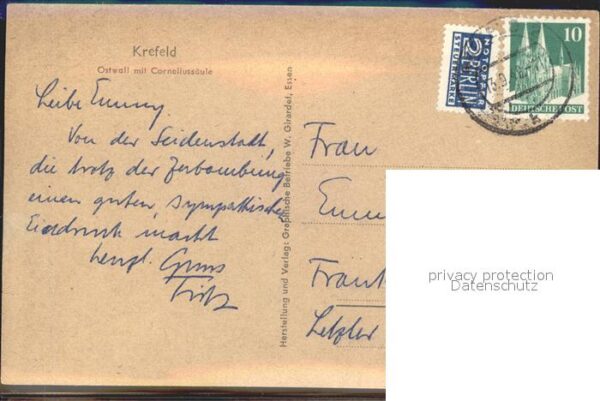 Krefeld
Ostwall mit Corneliussäule
Liebe Emmy.
Von der Seidenstadt,
die trotz der Zerbombung
einen guten, sympathischen
Eindruck macht
herzl. Gruss
Fritz
Herstellung und Verlag: Graphische Betriebe W. Girardet, Essen
NOTOPFER
2 BERLIN
STEUERMARKE
10
DEUTSCHE POST
Frau
Emm
Frank
Letzter
privacy protection
Datenschutz